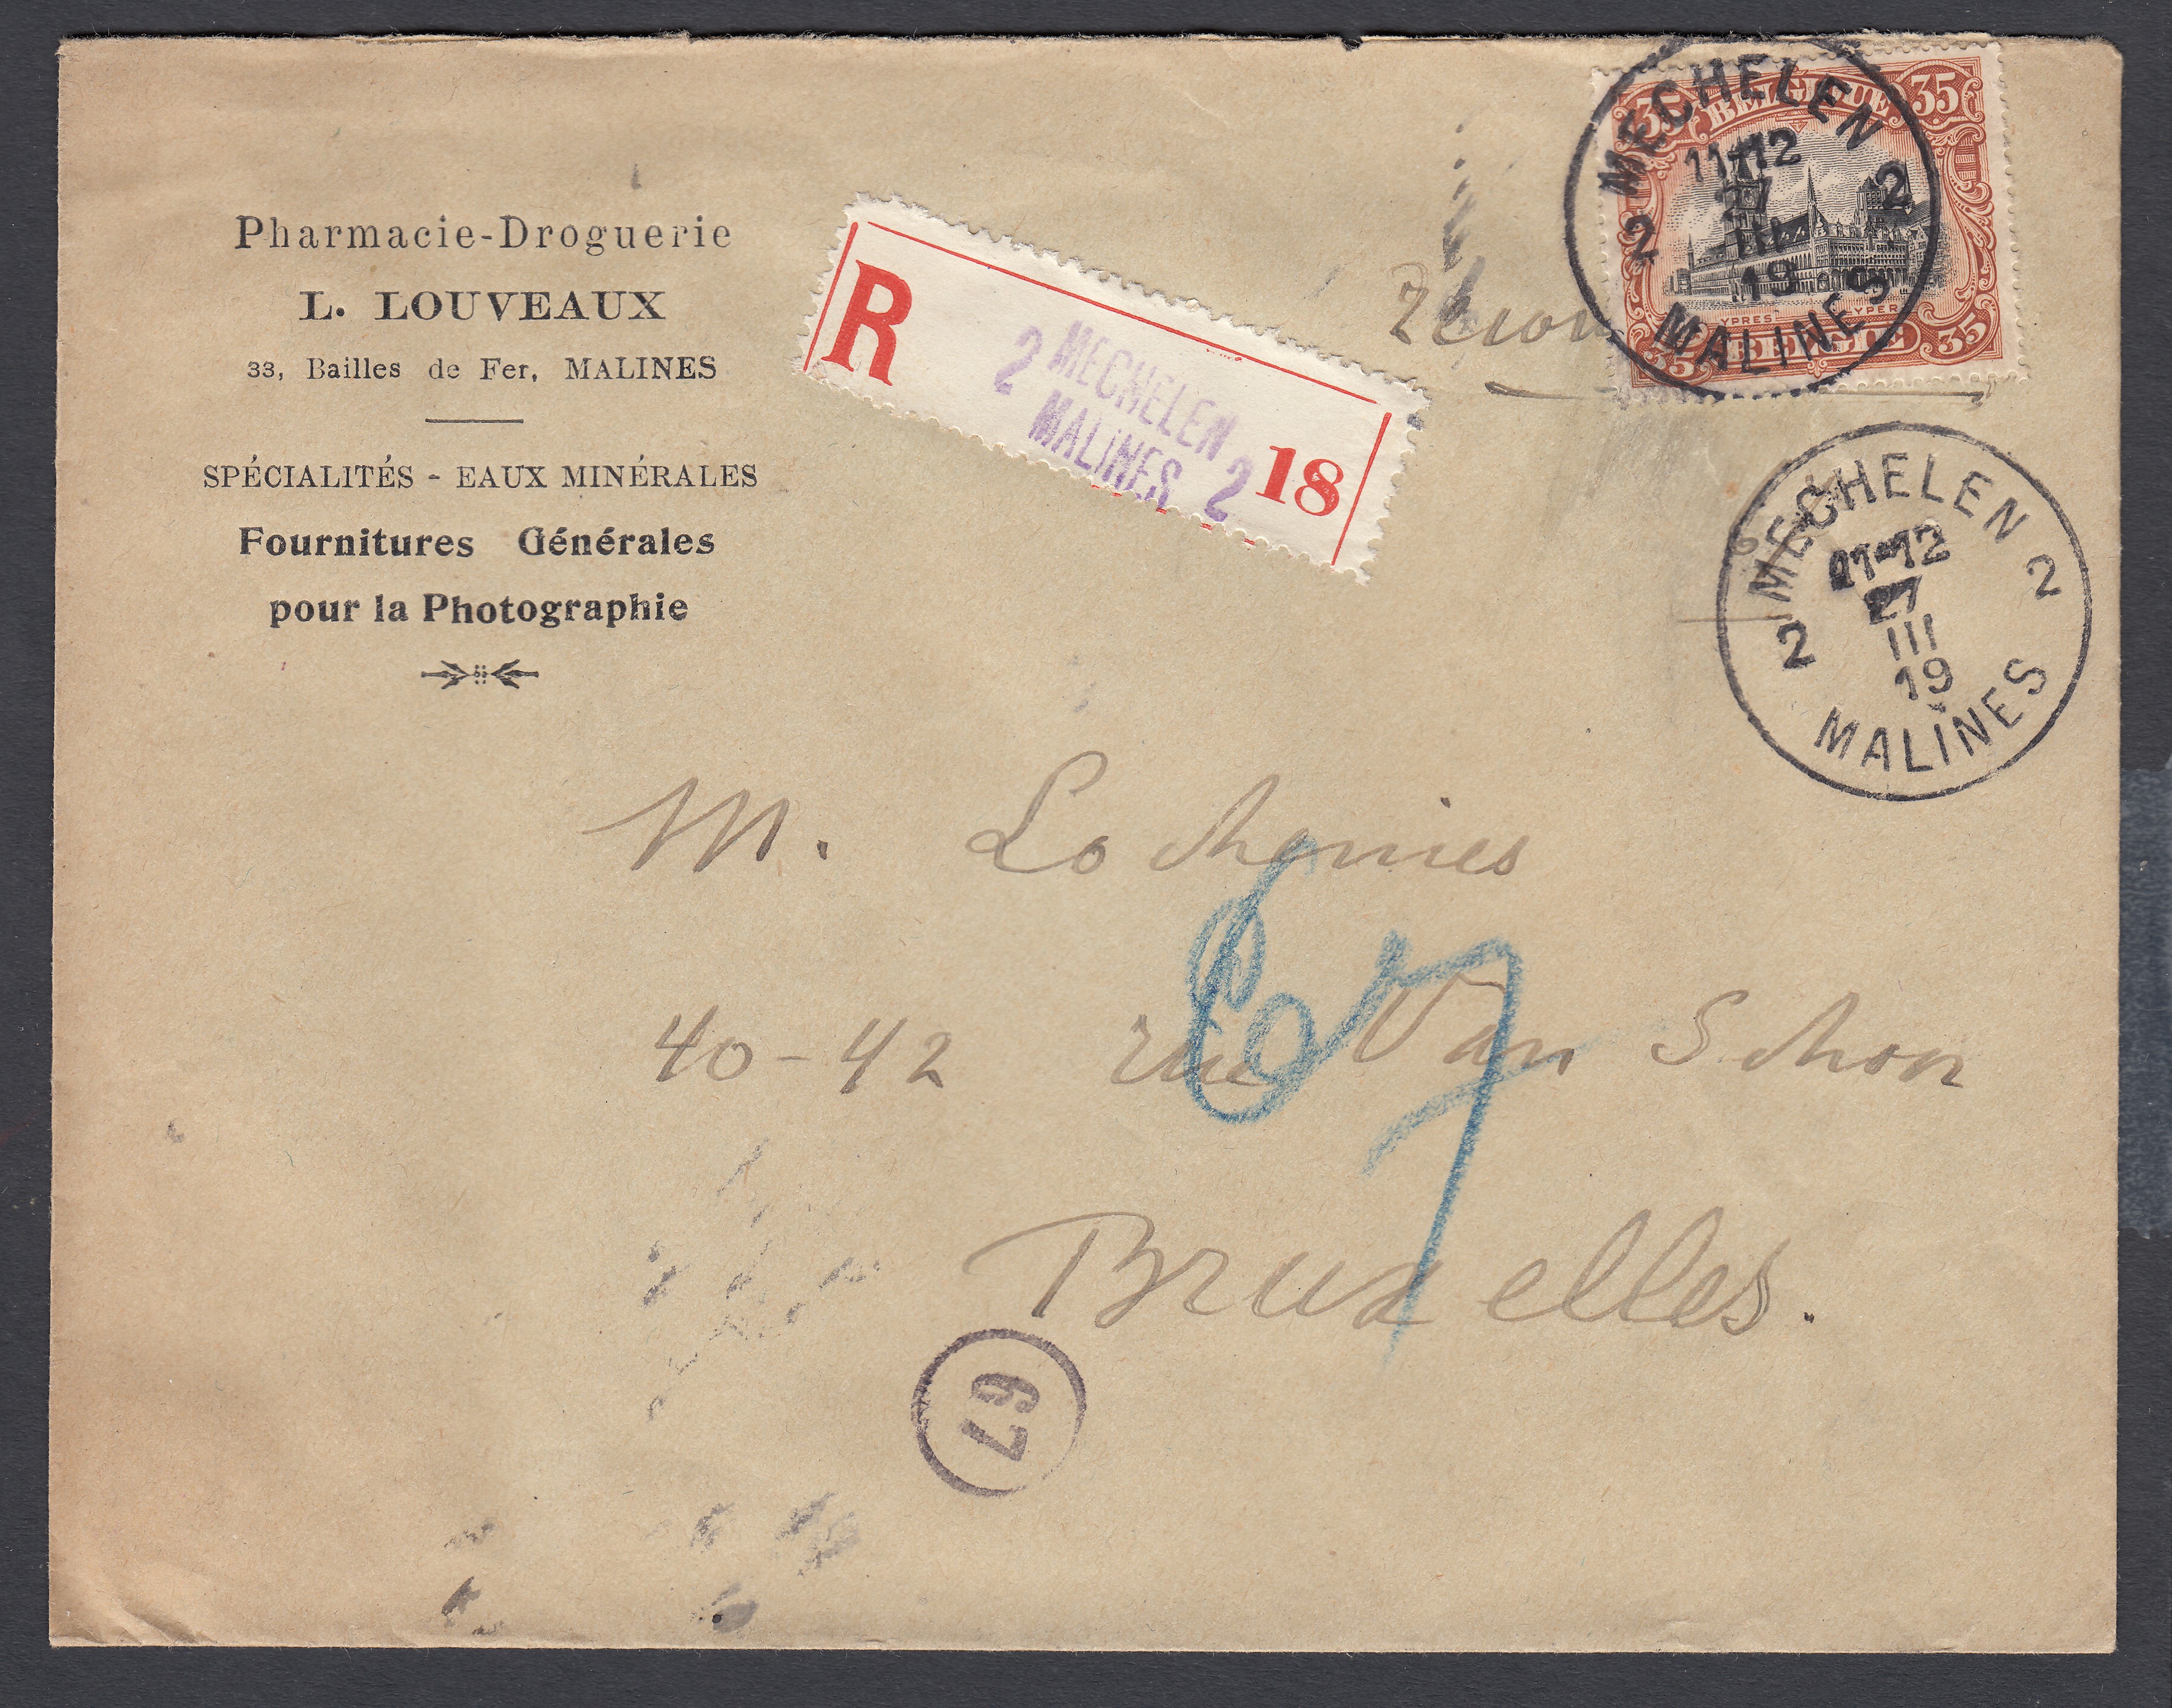 Pharmacie-Droguerie
L. LOUVEAUX
33, Bailles de Fer, MALINES
SPÉCIALITÉS - EAUX MINÉRALES
Fournitures Générales
pour la Photographie
R
2 MECHELEN
MALINES 2
18
35 BELGIQUE 35
YPRES YPER
35 BELGIË 35
MECHELEN
11-12
27
III
19
2 2
MALINES
MECHELEN
11-12
27
III
19
2 2
MALINES
M. Lochenies
40-42 rue Van Schoor
Bruxelles.
67
67